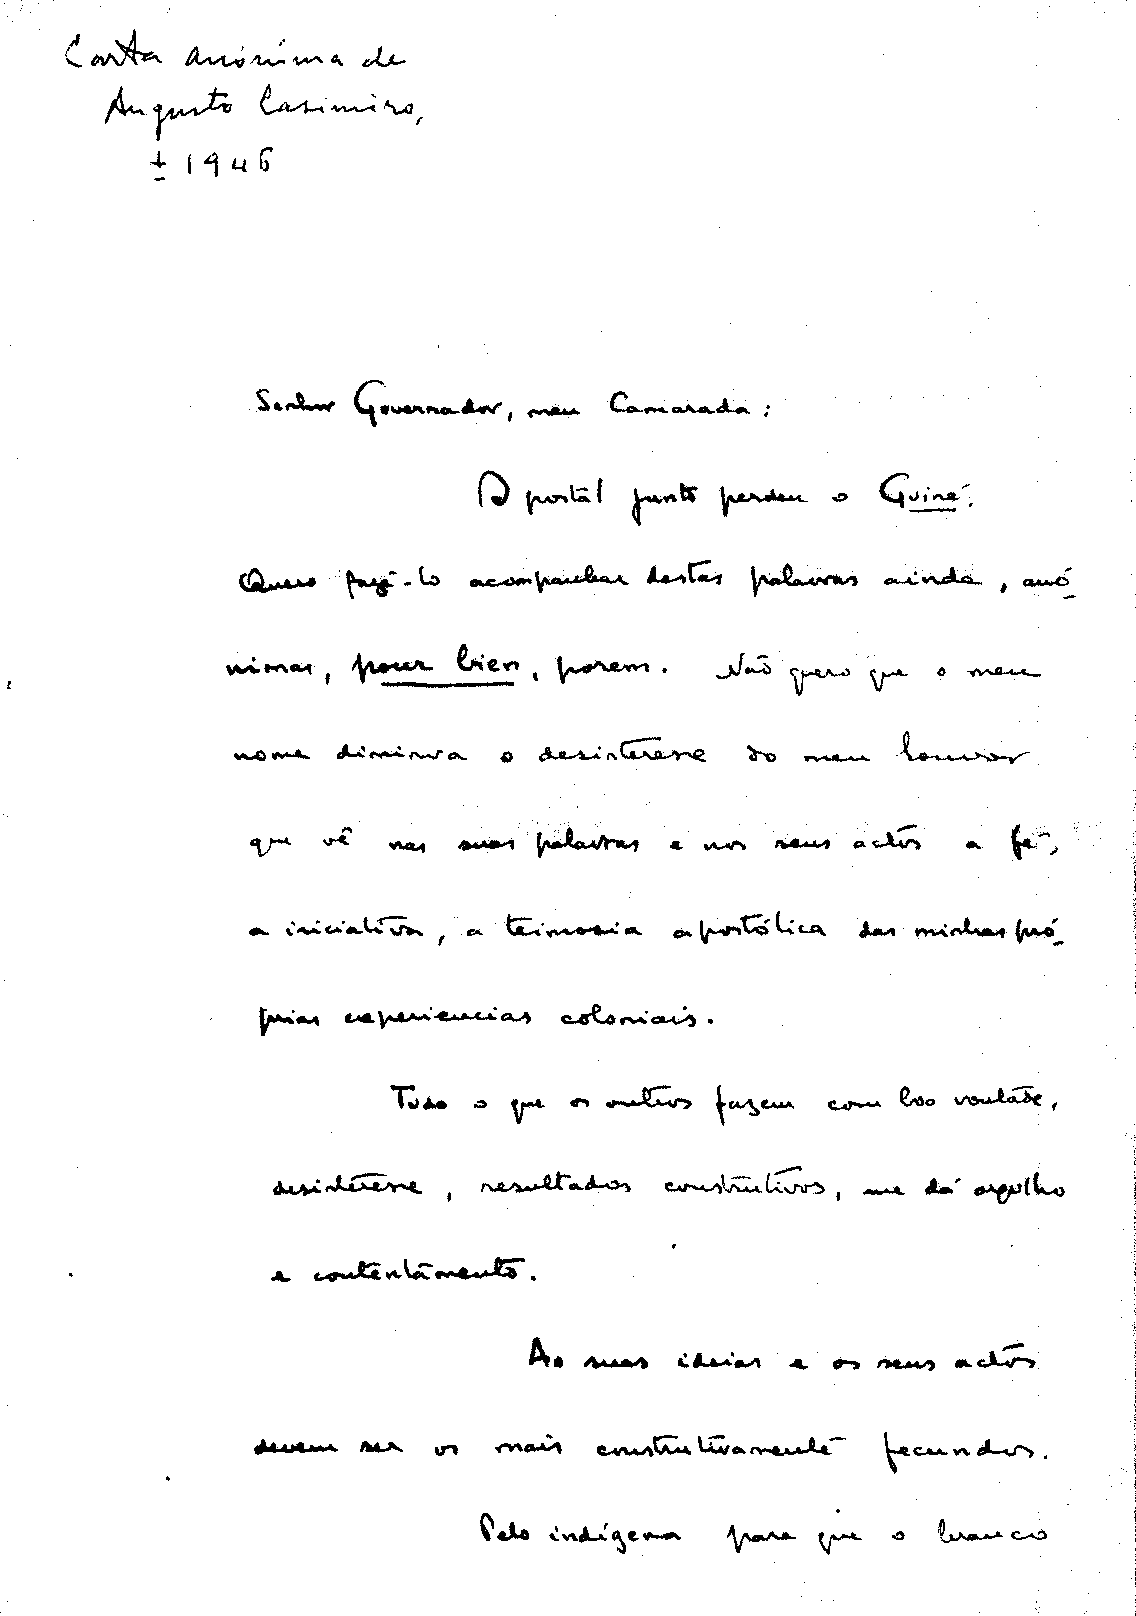 Carta anónima de
Augusto Casimiro,
± 1946
Senhor Governador, meu Camarada:
O postal junto perdeu o Guiné.
Quero fazê-lo acompanhar destas palavras ainda, anó-
nimas, pour bien, porem. Não quero que o meu
nome diminua o desinteresse do meu louvor
que vê nas suas palavras e nos seus actos a fé,
a iniciativa, a teimosia apostólica das minhas pró-
prias experiencias coloniais.
Tudo o que os outros fazem com boa vontade,
desinteresse, resultados construtivos, me dá orgulho
e contentamento.
As suas ideias e os seus actos
devem ser os mais construtivamente fecundos.
Pelo indígena para que o branco